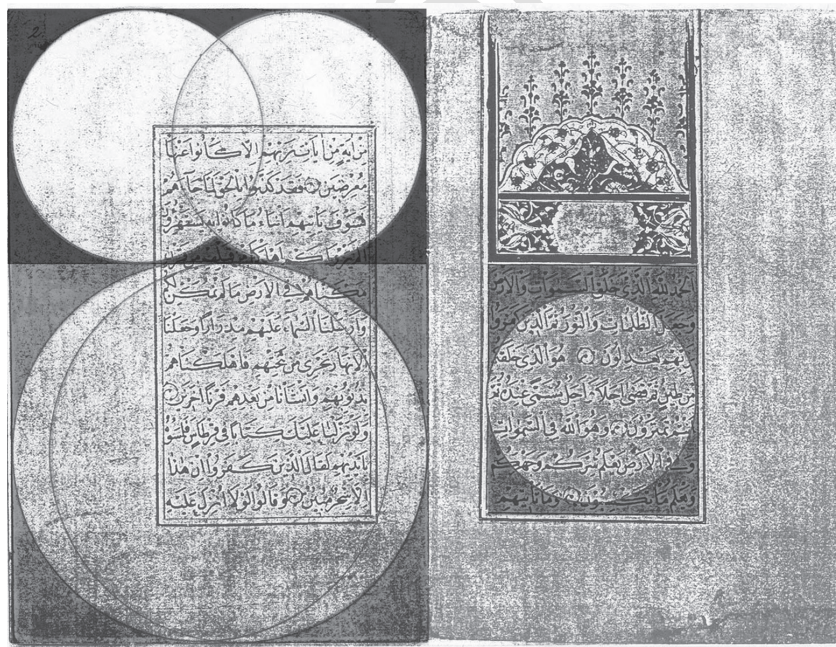 الحمد لله الذي خلق السموات والارض
وجعل الظلمات والنور ثم الذين كفروا
بربهم يعدلون هو الذي خلقكم
من طين ثم قضى اجلا واجل مسمى عنده ثم
انتم تمترون وهو الله في السموات
وفي الارض يعلم سركم وجهركم
ويعلم ما تكسبون وما تأتيهم
2
من آية من آيات ربهم الا كانوا عنها
معرضين فقد كذبوا بالحق لما جاءهم
فسوف يأتيهم انباء ما كانوا به يستهزؤن
الم يروا كم اهلكنا من قبلهم من قرن
مكناهم في الارض ما لم نمكن لكم
وارسلنا السماء عليهم مدرارا وجعلنا
الانهار تجري من تحتهم فاهلكناهم
بذنوبهم وانشأنا من بعدهم قرنا آخرين
ولو نزلنا عليك كتابا في قرطاس فلمسوه
بايديهم لقال الذين كفروا ان هذا
الا سحر مبين وقالوا لولا انزل عليه